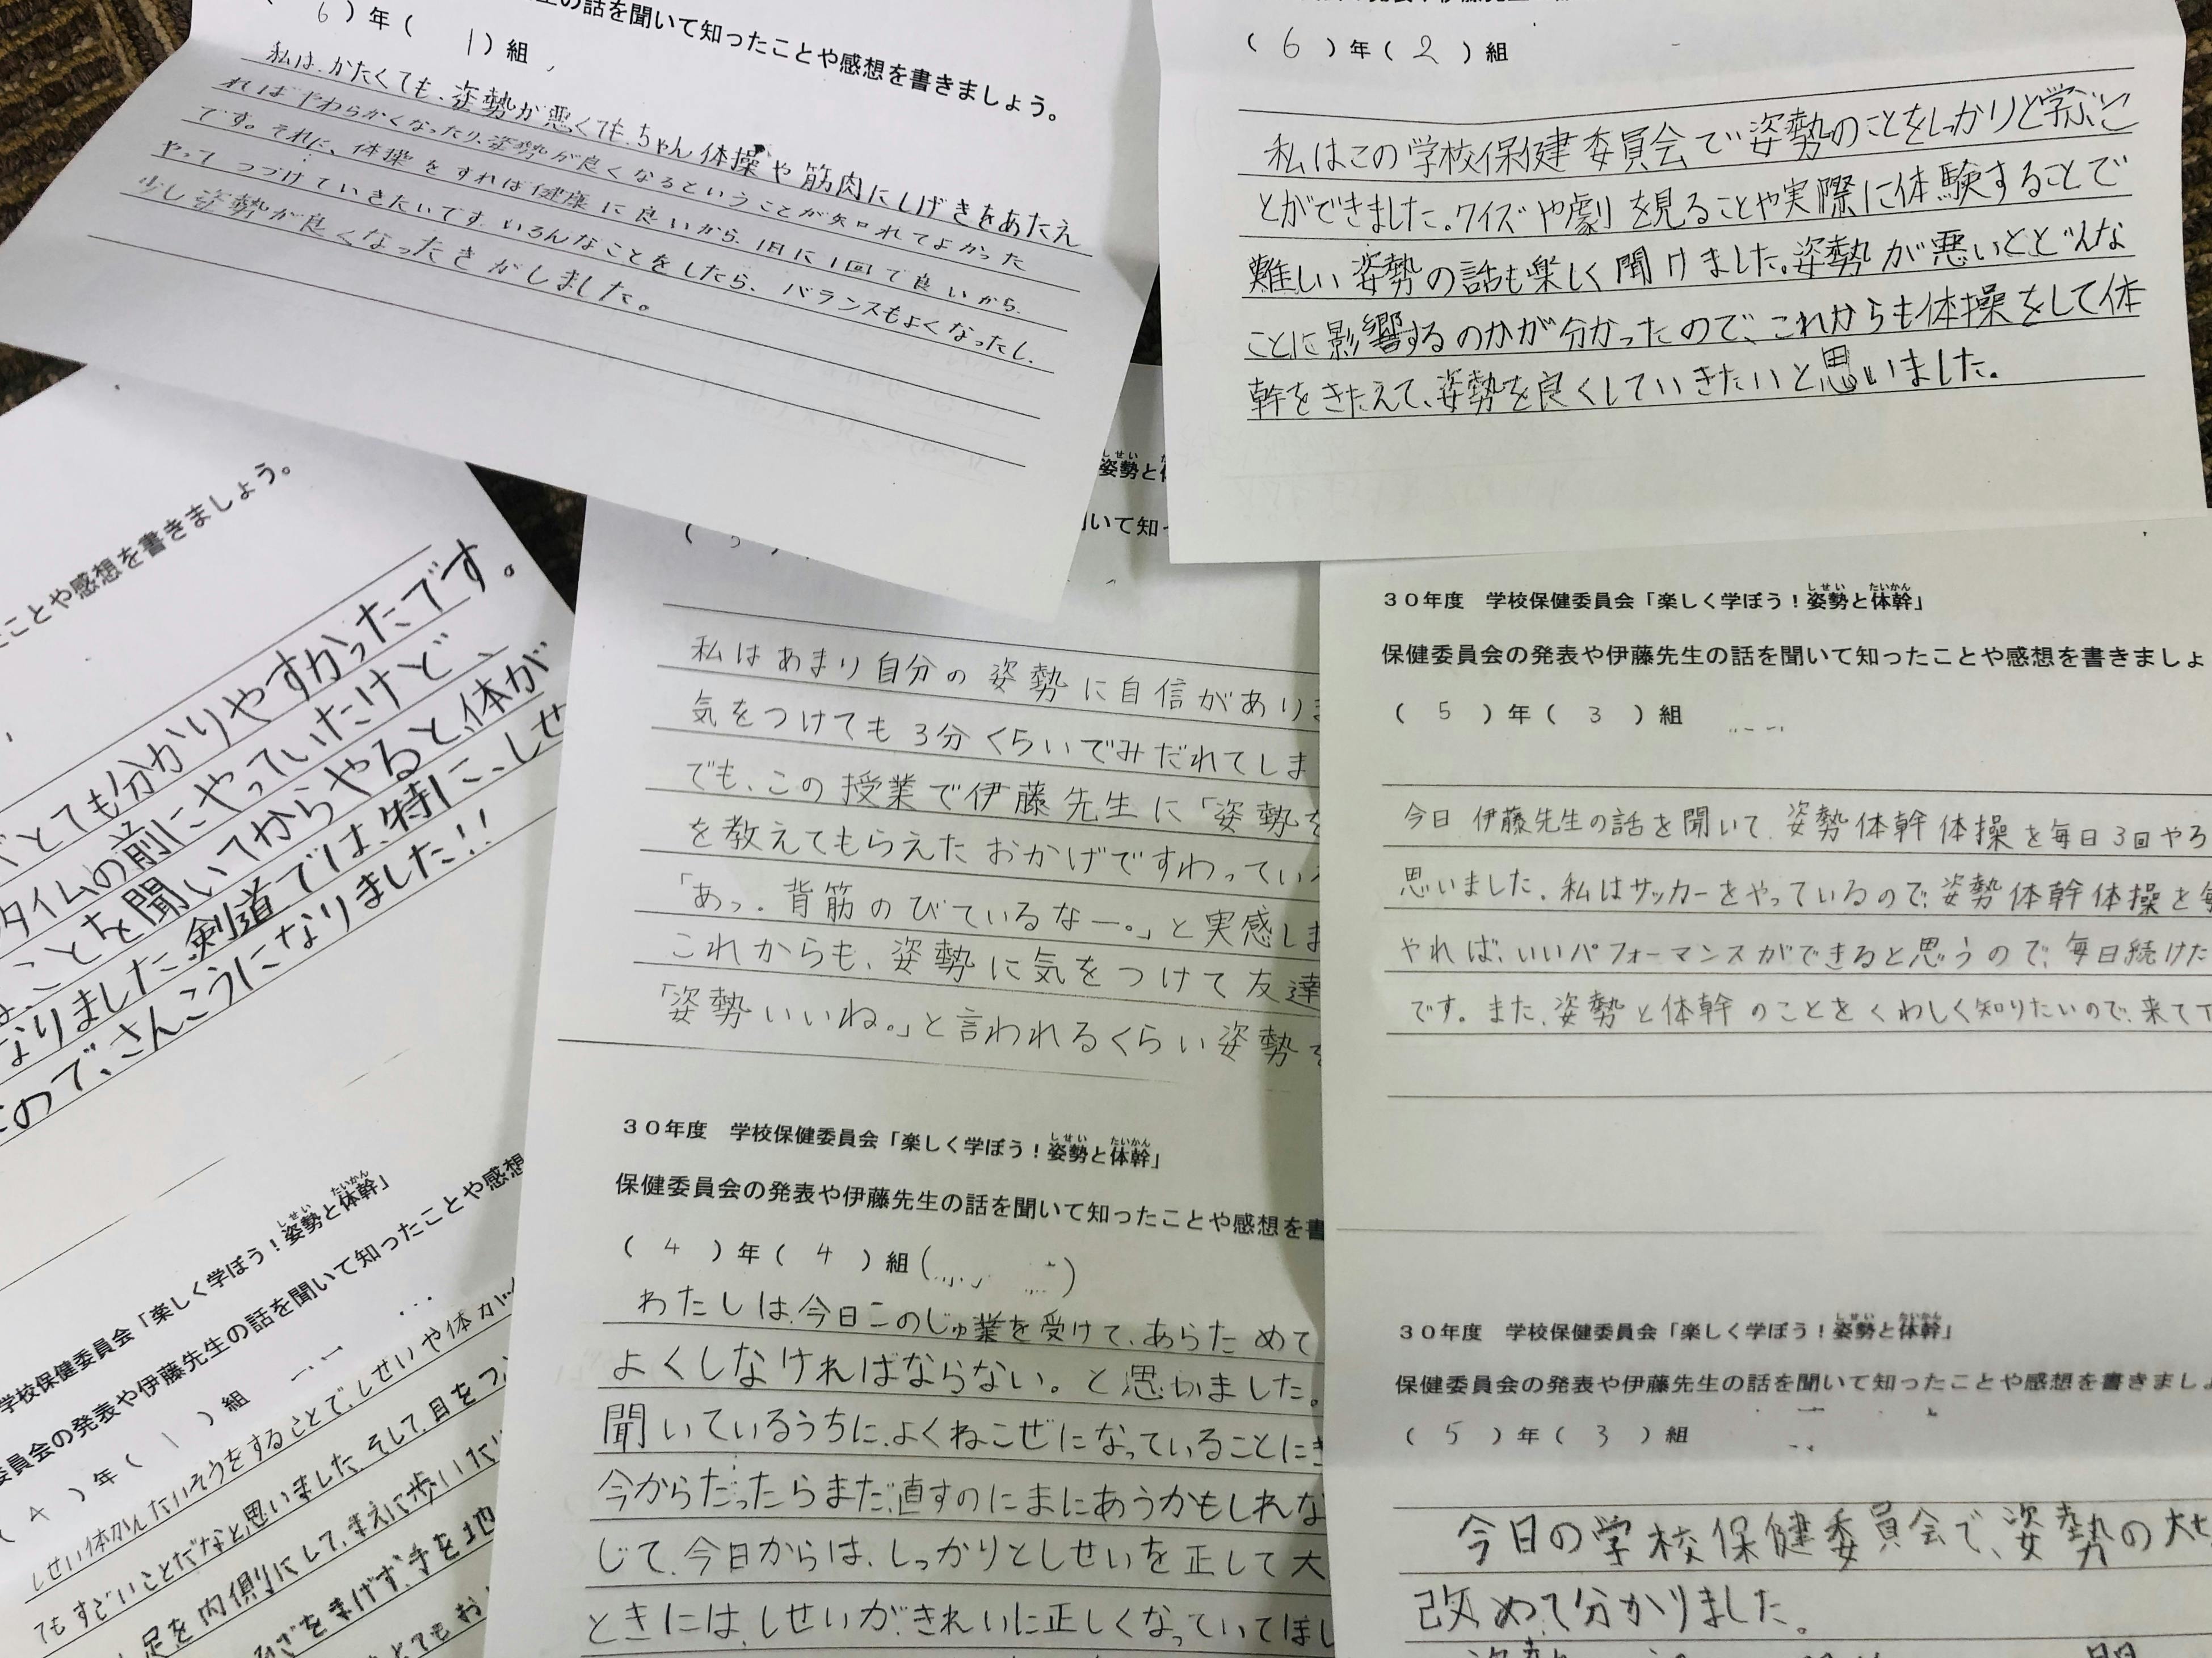 の話を聞いて知ったことや感想を書きましょう。
6）年（ 1）組
私は、かたくても、姿勢が悪くても、ちゃん体操や筋肉にしげきをあたえ
ればやわらかくなったり、姿勢が良くなるということが知れてよかった
です。それに、体操をすれば健康に良いから、1日に1回で良いから、
やってつづけていきたいです。いろんなことをしたら、バランスもよくなったし、
少し姿勢が良くなったきがしました。
（ 6 ）年（ 2 ）組
私はこの学校保健委員会で姿勢のことをしっかりと学ぶこ
とができました。クイズや劇を見ることや実際に体験することで
難しい姿勢の話も楽しく聞けました。姿勢が悪いとどんな
ことに影響するのかが分かったので、これからも体操をして体
幹をきたえて、姿勢を良くしていきたいと思いました。
ことや感想を書きましょう。
とても分かりやすかったです。
タイムの前にやっていたけど、
ことを聞いてからやると、体が
なりました。剣道では、特に、しせ
ので、さんこうになりました!!
しせい
姿勢と
いて知
私はあまり自分の姿勢に自信があり
気をつけても3分くらいでみだれてしま
でも、この授業で伊藤先生に「姿勢
を教えてもらえたおかげですわってい
「あっ。背筋のびているなー。」と実感し
これからも、姿勢に気をつけて友達
「姿勢いいね。」と言われるくらい姿勢
しせい たいかん
30年度 学校保健委員会「楽しく学ぼう！姿勢と体幹」
保健委員会の発表や伊藤先生の話を聞いて知ったことや感想を書きましょ
（ 5 ）年（ 3 ）組
今日 伊藤先生の話を聞いて、姿勢体幹体操を毎日3回やろ
思いました。私はサッカーをやっているので、姿勢体幹体操を
やれば、いいパフォーマンスができると思うので、毎日続けた
です。また、姿勢と体幹のことをくわしく知りたいので、来て
しせい たいかん
学校保健委員会「楽しく学ぼう！姿勢と体幹」
委員会の発表や伊藤先生の話を聞いて知ったことや感想
（ 4 ）年（ 1 ）組
しせい体かんたいそうをすることで、しせいや体が
てもすごいことだなと思いました。そして、目をつ
足を内側にして、まえに歩いた
ざをまげず、手を地
とてもお
しせい たいかん
30年度 学校保健委員会「楽しく学ぼう！姿勢と体幹」
保健委員会の発表や伊藤先生の話を聞いて知ったことや感想を書
（ 4 ）年（ 4 ）組（
わたしは、今日このじゅ業を受けて、あらためて
よくしなければならない。と思いました。
聞いているうちに、よくねこぜになっていることに
今からだったらまだ直すのにまにあうかもしれな
じて、今日からは、しっかりとしせいを正して大
ときには、しせいがきれいに正しくなっていてほし
しせい たいかん
30年度 学校保健委員会「楽しく学ぼう！姿勢と体幹」
保健委員会の発表や伊藤先生の話を聞いて知ったことや感想を書きまし
（ 5 ）年（ 3 ）組
今日の学校保健委員会で、姿勢の大
改めて分かりました。